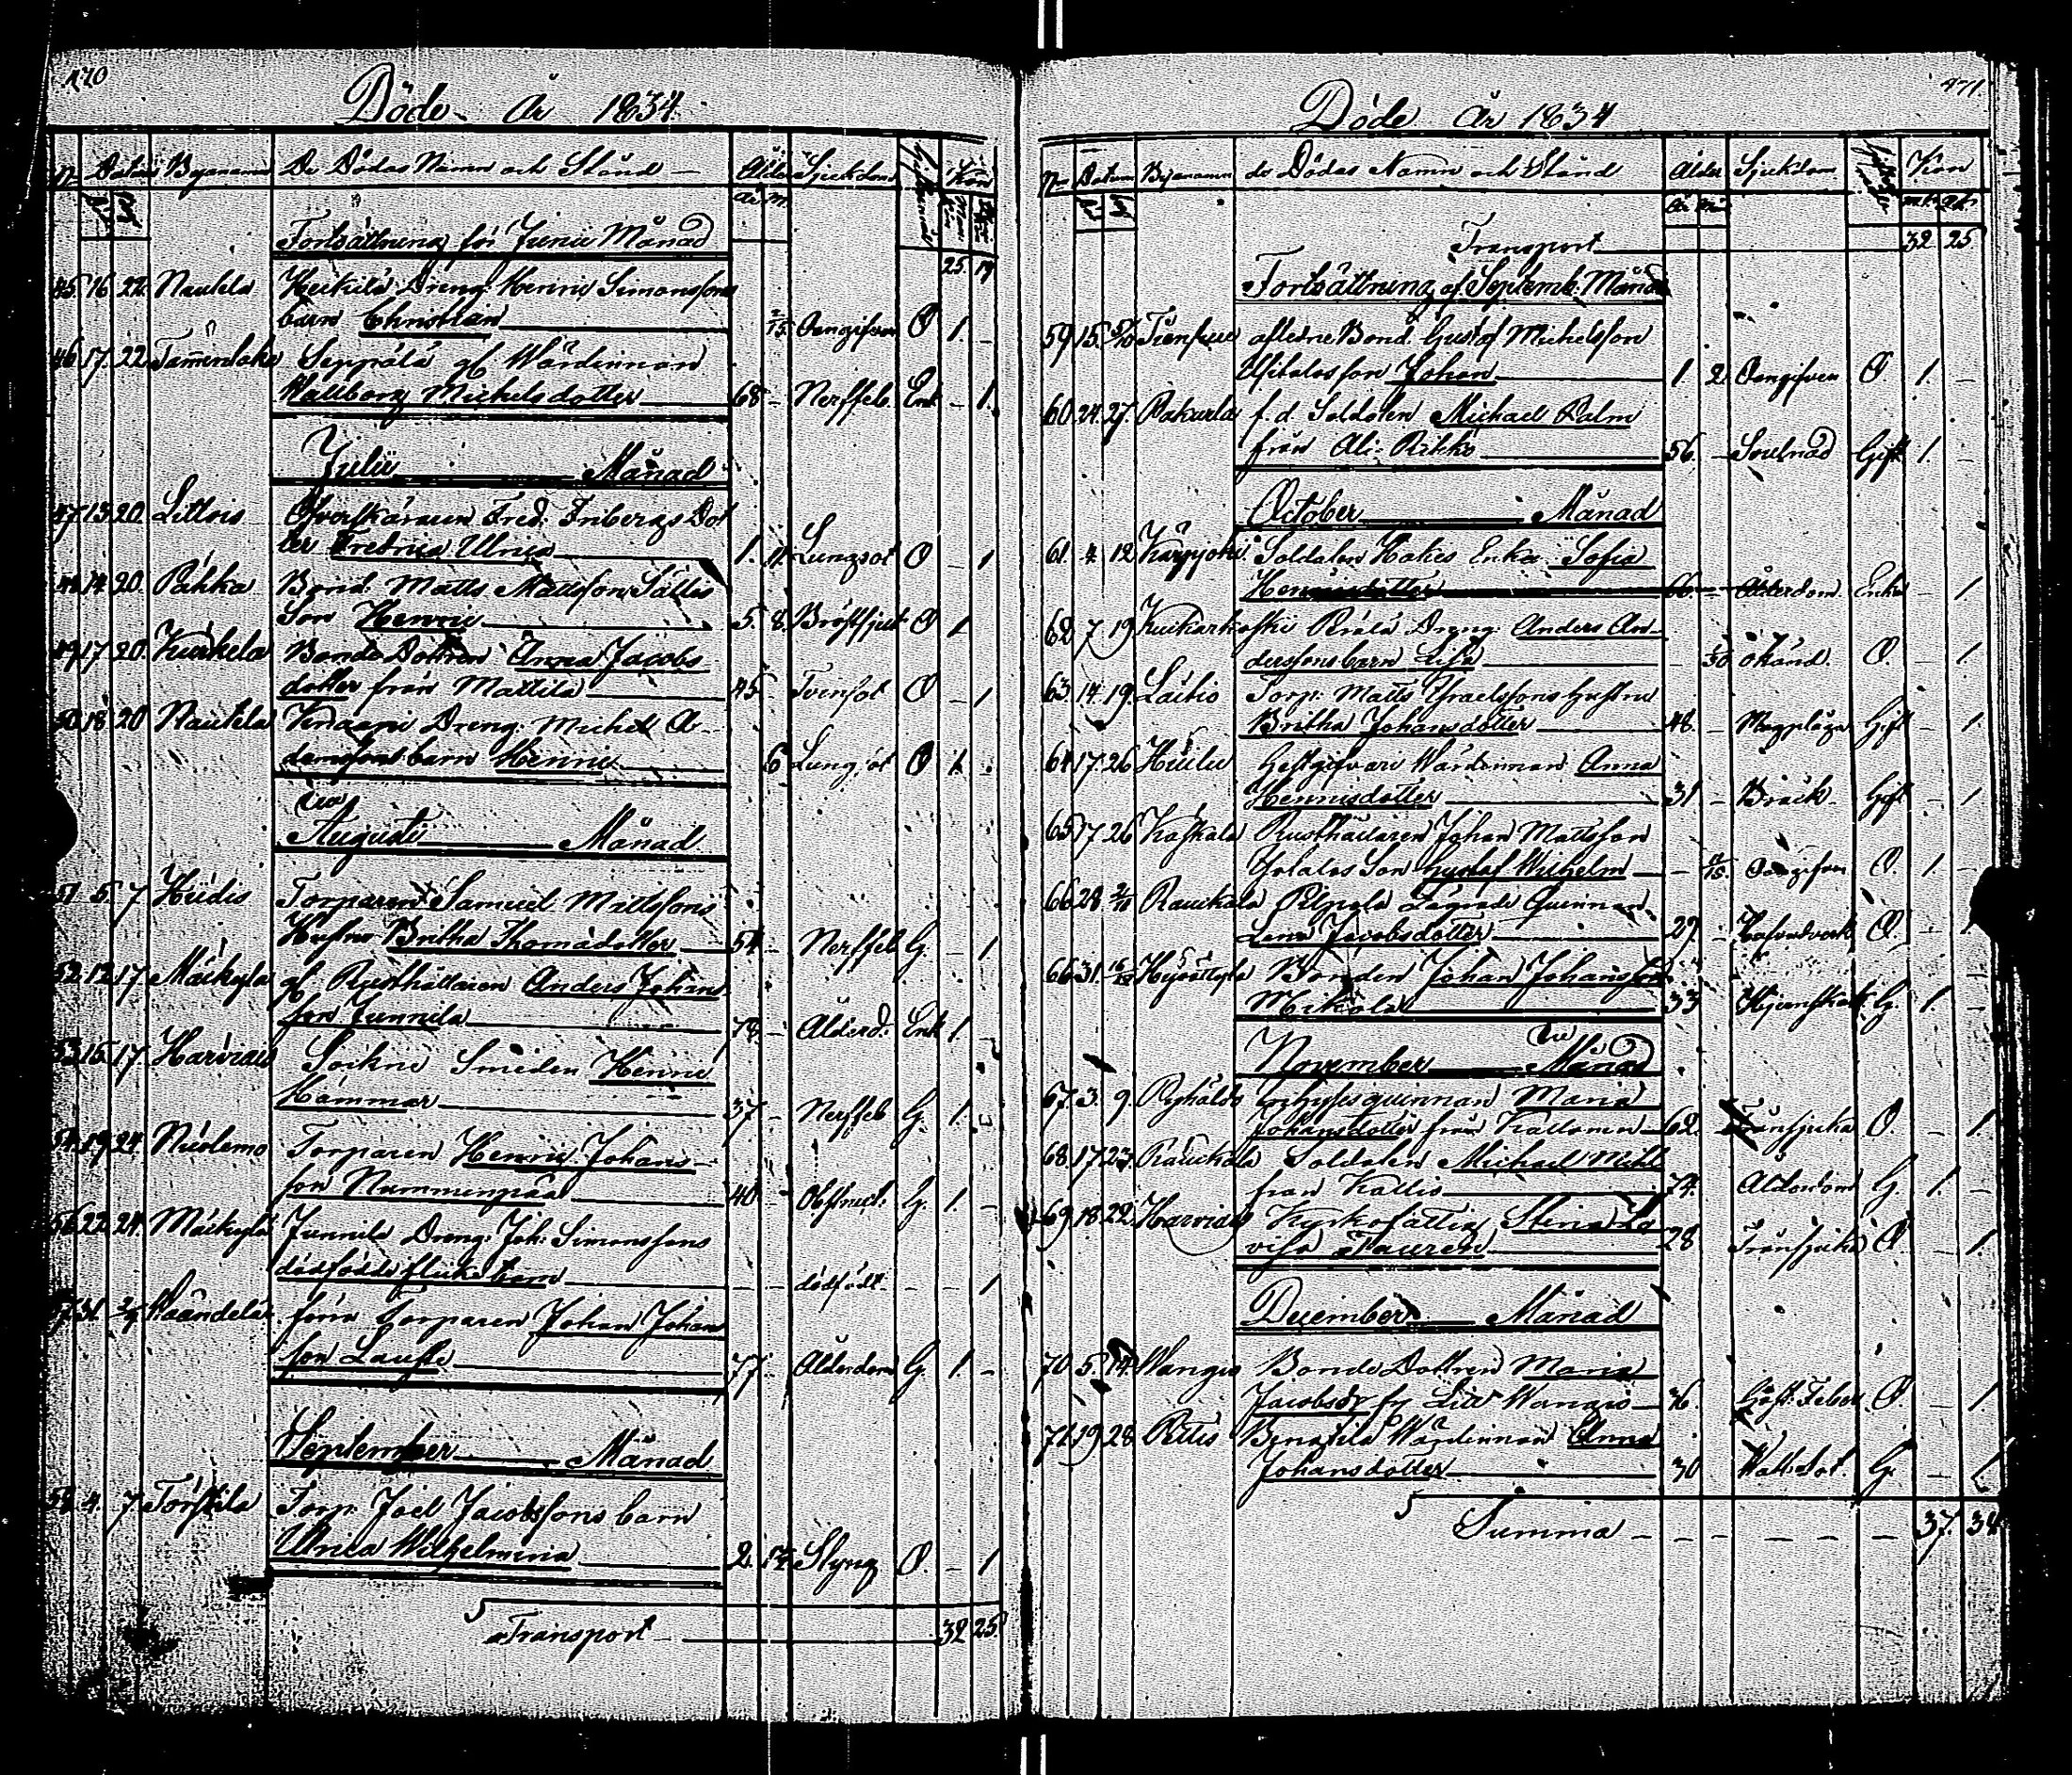 470
Döde År 1834.
No Datum Bynamn De Dödas Namn och Stånd Ålder Sjukdom Kön
År M.
Fortsättning för Junii Månad
25. 19
45. 16 22. Nautela Heikilä Dreng. Henric Simonssons
barn Christian 2/15 Oangifven O 1. -
46 17. 22 Tamerloka Seppälä gl. Wärdinnan
Wallborg Michelsdotter 68 - Nerffeb. Enk - 1.
Julii Månad
47. 13. 20. Littois Öfverskäraren Fred: Fribergs Dot
ter Fredrica Ulrica 1. 11. Lungsot O - 1
48. 14 20. Pakka Bond. Matts Mattsson Sältis
Son Henric 5. 8. Bröstsjuk O 1.
49. 17 20. Kurkela Bonde Dottren Anna Jacobs
dotter från Mattila 45 Tvinsot O - 1
50. 18 20 Nautela Dreng. Michel A
damssons barn Henric 6 Lungsot O 1. -
Augusti Månad
51. 5. 7 Hiidis Torparen Samuel Mattssons
Hustru Britha Thomädotter 54 - Nerffeb G. - 1
52. 12. 17. Mäkylä gl. Rusthållaren Anders Johans
son Junnila 78. - Ålderd. Enk 1. -
53. 15. 17. Harviais Sockne Smeden Henric
Hammar 37 - Nerffeb G. 1.
54. 19. 24. Nuolemo Torparen Henric Johans
son Nummenpää 40 - Obstruct. G. 1. -
56. 22. 24. Mäkylä Junnila Dreng. Joh: Simonssons
dödfödde flicke barn - - dödfödt. - - 1
57. 31. 2/9 Waandela förra Torparen Johan Johans
son Lauste 77. - Ålderdom G. 1. -
September Månad
58. 4. 7. Torstila Torp. Joel Jacobssons barn
Ulrica Wilhelmina 2. Slyng O. - 1
Transport 32 25.
471
Döde År 1834
No Datum Bynamn de Dödas Namn och Stånd Ålder Sjukdom Kön
Transport 32. 25
Fortsättning af Septemb. Månad
59 15. 5/10 afledne Bond. Gustaf Michelsson
son Johan 1. 2. Oangifven O. 1. -
60. 24. 27. Pakurla f. d. Soldaten Michael Palm
från Ali-Pihko 56. - Svulnad Gift 1. -
October Månad
61. 4 12 Karpijoki Soldaten Hakes Enka Sofia
Henricsdotter 66. - Ålderdom. Enka - 1
62 7 19 Kuikarkoski Dreng. Anders An
derssons barn Lisa - 1/30 okänd. O. - 1.
63. 14. 19. Laitio Torp. Matts Israelssons hustru
Britha Johansdotter 48. - Magplåga Gift - 1
64 17. 26 Huilu Gestgifvare Wärdinnan Anna
Henricsdotter 31 - Bråck Gift - 1
65 17 26 Koskala Rusthållaren Johan Mattsson
Son Gustaf Wilhelm - Oangifven O. 1. -
66 28 2/11 Raukola Lägrade Quinnan
Lena Jacobsdotter 29 - O. - 1
66 31. Bonden Johan Johansson
Mikola 33 G. 1. -
November Månad
67. 3. 9. Inhysesquinnan Maria
Johansdotter från Kallonen 62. Trånsjuka O. - 1.
68. 17 23. Raukola Soldaten Michael Mihl
från Kallis 74. Ålderdom G. 1. -
69 18 22 Harviais Kyrkofattig Stina Lo
visa Tauren 28 Trånsjuka O. - 1.
December Månad
70. 5. 14. Wangio Bonde Dottren Maria
Jacobsdr fr. Lill Wangio 36. Feber O. - 1
71. 19. 28 Pettis Wärdinnan Anna
Johansdotter 30 Watt.Sot. G. - 1
Summa - - - - - 37. 34